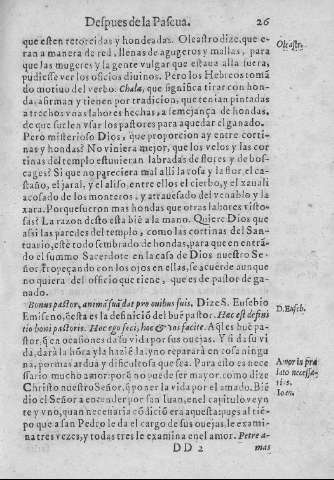 Despues de la Pascua. 26
que esten retorcidas y hondeadas. Oleastro dize, que e-
ran a manera de red, llenas de agugeros y mallas, para
que las mugeres y la gente vulgar que estaua alla fuera,
pudiesse ver los oficios diuinos. Pero los Hebreos tomã
do motiuo del verbo Chala, que significa tirar con hon-
da, afirman y tienen por tradicion, que tenian pintadas
a trechos vnas labores hechas, a semejança de hondas,
de que suelen vsar los pastores para aquedar el ganado.
Pero misterioso Dios, que proporcion ay entre corti-
nas y hondas? No viniera mejor, que los velos y las cor
tinas del templo estuuieran labradas de flores y de bos-
cages? Si que no pareciera mal alli la rosa y la flor, el ca-
staño, el jaral, y el aliso, entre ellos el cierbo, y el xauali
acosado de los monteros, y atrauesado del venablo y la
xara. Porque fueron mas hondas que otras labores visto-
sas? La razon desto esta biẽ a la mano. Quiere Dios que
assi las paredes del templo, como las cortinas del San-
tuario, estẽ todo sembrado de hondas, para que en entrã-
do el summo Sacerdote en la casa de Dios nuestro Se-
ñor, tropeçando con los ojos en ellas, se acuerde aunque
no quiera del officio que tiene, que es de pastor de ga-
nado.
Bonus pastor, animã suã dat pro ouibus suis, Dize S. Eusebio
Emiseno, q̃ esta es la definiciõ del buẽ pastor. Hoc est defini
tio boni pastoris. Hoc ego feci, hoc & vos facite. Aq̃l es buẽ pa-
stor, q̃ en ocasiones da su vida por sus ouejas. Y si da su vi
da, darà la hõra y la haziẽda, y no reparará en cosa ningu
na, por mas ardua y dificultosa que sea. Para esto es nece
ssario mucho amor: porq̃ no puede ser mayor, como dize
Christo nuestro Señor, q̃ poner la vida por el amado. Biẽ
dio el Señor a entender por san Iuan, en el capitulo veyn
te y vno, quan necessaria cõdiciõ era aquesta: pues al tiẽ-
po que a san Pedro le da el cargo de sus ouejas, le exami-
na tres vezes, y todas tres le examina en el amor. Petre a-
DD 2 mas
Oleastr.
D. Euseb.
Amor in pre
lato necessa-
Ioan.